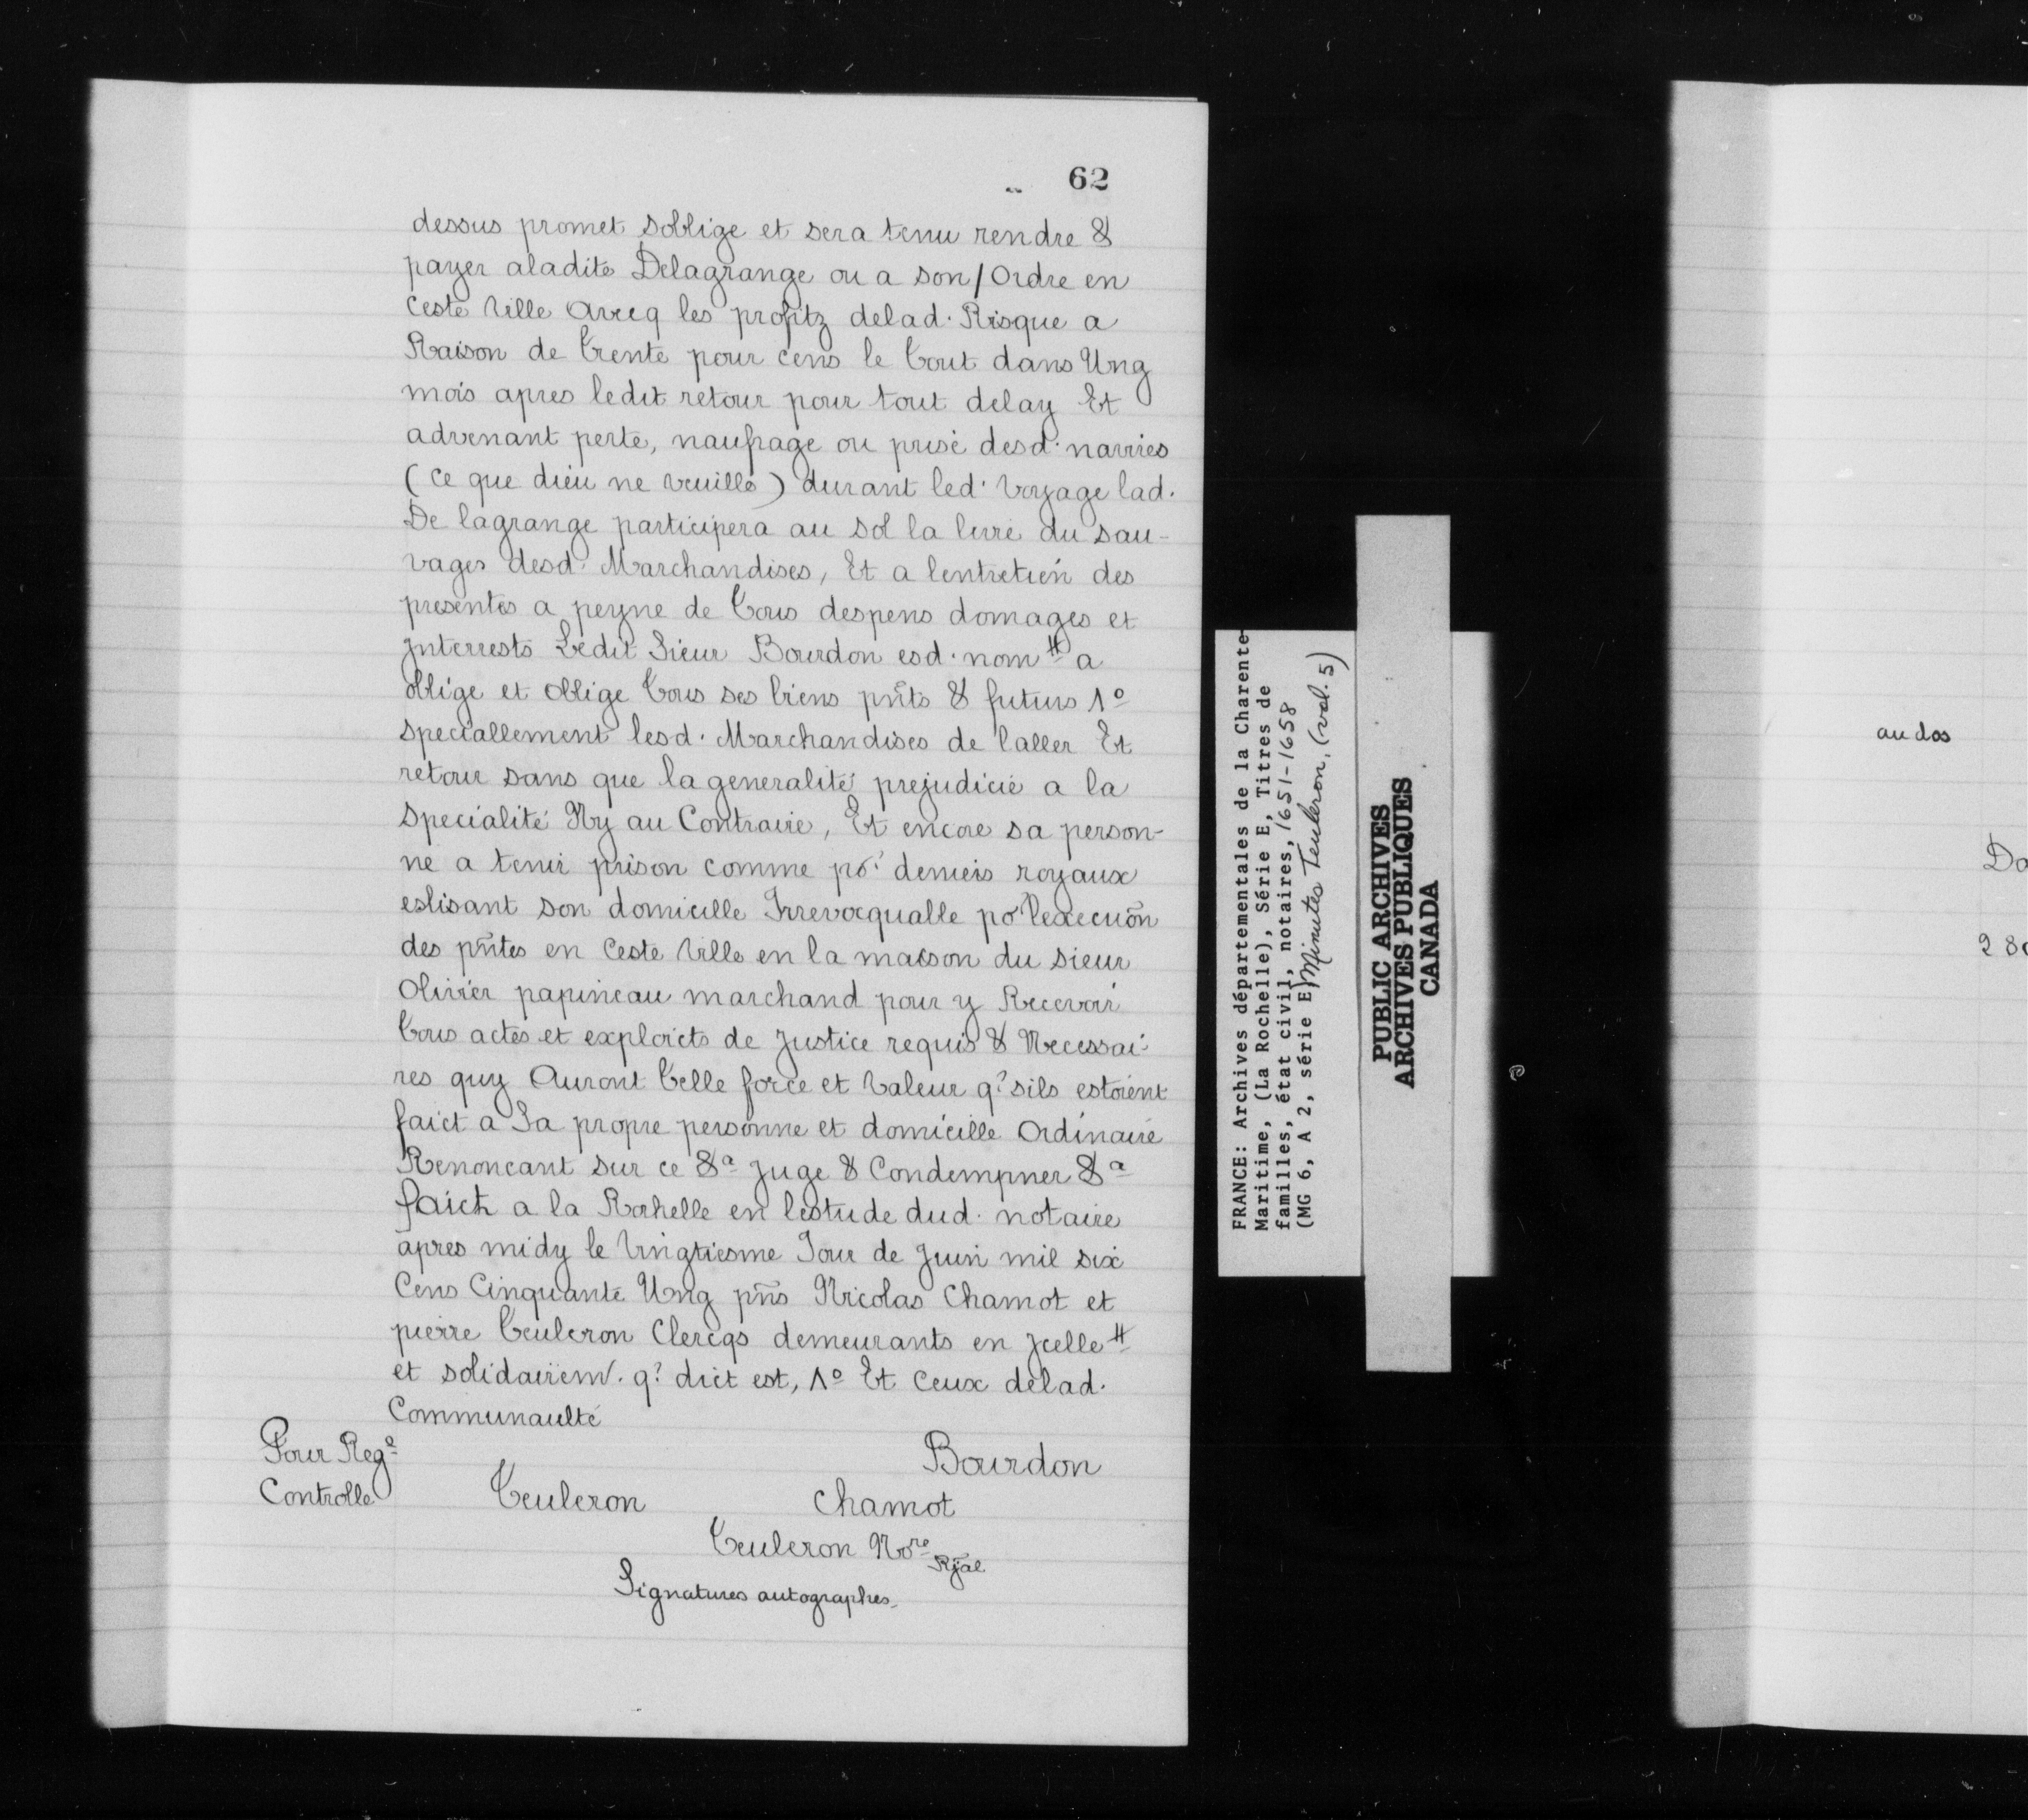 62
dessus promet soblige et sera tenu rendre &
payer aladite Delagrange ou a son/Ordre en
Ceste Ville Avecq les profitz delad. Risque a
Raison de trente pour cens le tout dans Ung
mois apres ledit retour pour tout delay Et
advenant perte, naufrage ou prise desd. navires
(ce que dieu ne veuille) durant led. Voyage lad.
De lagrange participera au sol la livre du sau-
vages desd. Marchandises, Et a lentretien des
presentes a peyne de tous despens domages et
Jnterrests Ledit Sieur Bourdon esd. nom # a
oblige et oblige tous ses biens pnts & futurs 1º
speciallement lesd. Marchandises de laller Et
retour sans que la generalité prejudicie a la
specialité Ny au Contraire, Et encore sa person-
ne a tenir prison comme po.r deniers royaux
eslisant son domicille Irrevocquable po lexecuõn
des pntes en Ceste Ville en la maison du sieur
Olivier papineau marchand pour y Recevoir
tous actes et exploicts de Justice requis & Necessai-
res quy Auront telle force et Valeur q? sils estoient
faict a Sa propre personne et domicille Ordinaire
Renoncant sur ce &a Juge & Condempner &a
faict a la Rochelle en lestude dud. notaire
apres midy le Vingtiesme Jour de Juin mil six
Cens Cinquante Ung pns Nicolas Chamot et
pierre Teuleron Clercqs demeurants en Jcelle #
et solidairem. q? dict est, 1º Et Ceux delad.
Communaulté
Pour Rege
Controlle
Bourdon
Teuleron Chamot
Teuleron Nore Rÿal
Signatures autographes.
FRANCE: Archives départementales de la Charente-
Maritime, (La Rochelle), Série E, Titres de
familles, état civil, notaires, 1651-1658
(MG 6, A 2, série E) Minutes Teuleron, (vol. 5)
PUBLIC ARCHIVES
ARCHIVES PUBLIQUES
CANADA
au dos
Da